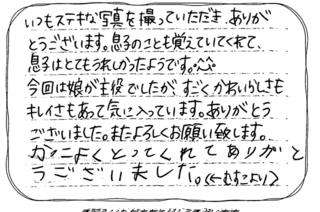 いつもステキな写真を撮っていただき、ありが
とうございます。息子のことも覚えていてくれて、
息子はとてもうれしかったようです。^^
今回は娘が主役でしたが、すごくかわいらしさも
キレイさもあって気に入っています。ありがとう
ございました。またよろしくお願い致します。
カッコよくとってくれてありがと
うございました。(←むすこより)